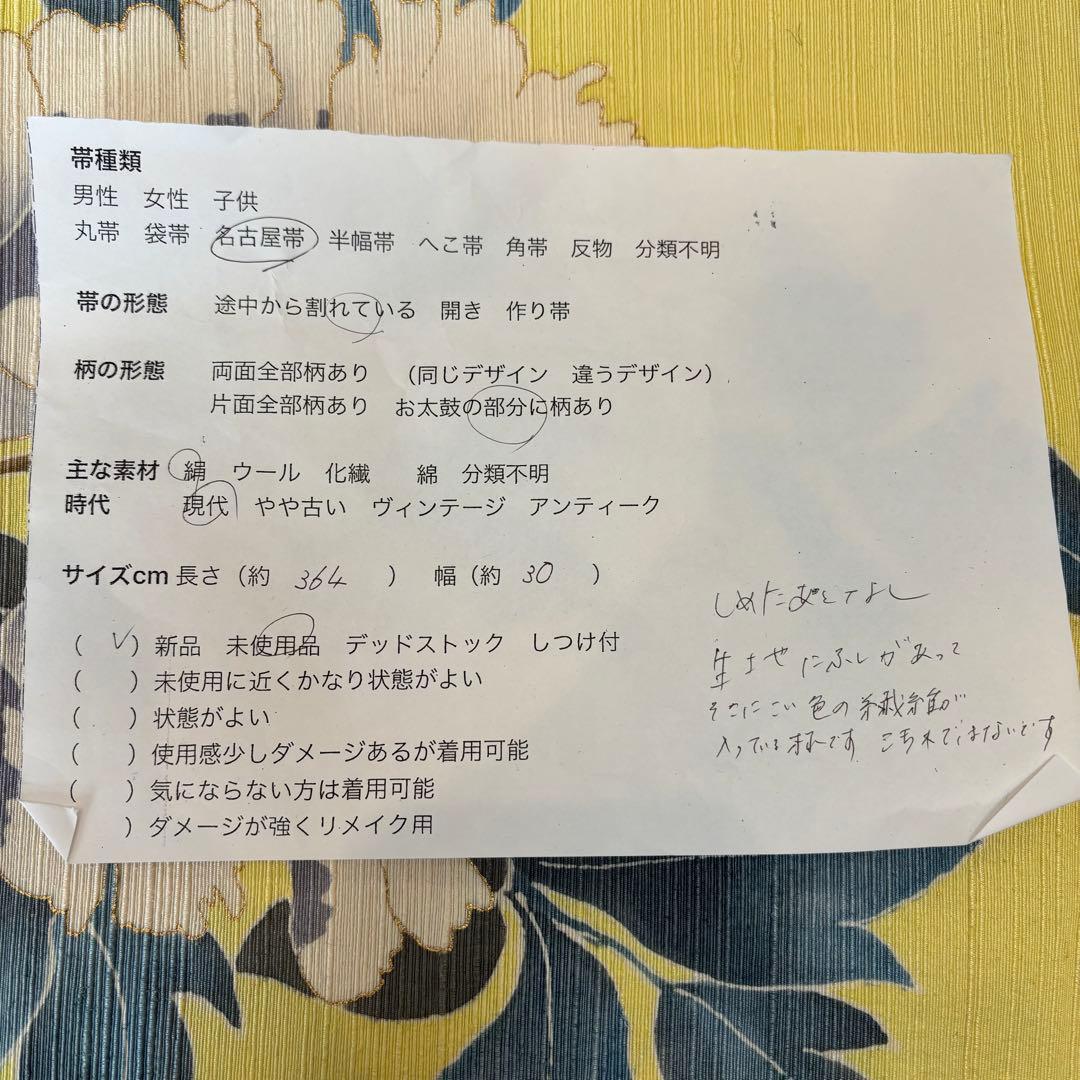 帯種類
男性 女性 子供
丸帯 袋帯 名古屋帯 半幅帯 へこ帯 角帯 反物 分類不明
帯の形態 途中から割れている 開き 作り帯
柄の形態 両面全部柄あり (同じデザイン 違うデザイン)
片面全部柄あり お太鼓の部分に柄あり
主な素材 絹 ウール 化繊 綿 分類不明
時代 現代 やや古い ヴィンテージ アンティーク
サイズcm 長さ(約 364 ) 幅(約 30 )
( ✓ )新品 未使用品 デッドストック しつけ付
( )未使用に近くかなり状態がよい
( )状態がよい
( )使用感少しダメージあるが着用可能
( )気にならない方は着用可能
)ダメージが強くリメイク用
しめたあとなし
生地にふしがあって
そこにこい色の繊維が
入っている
です よごれではないです